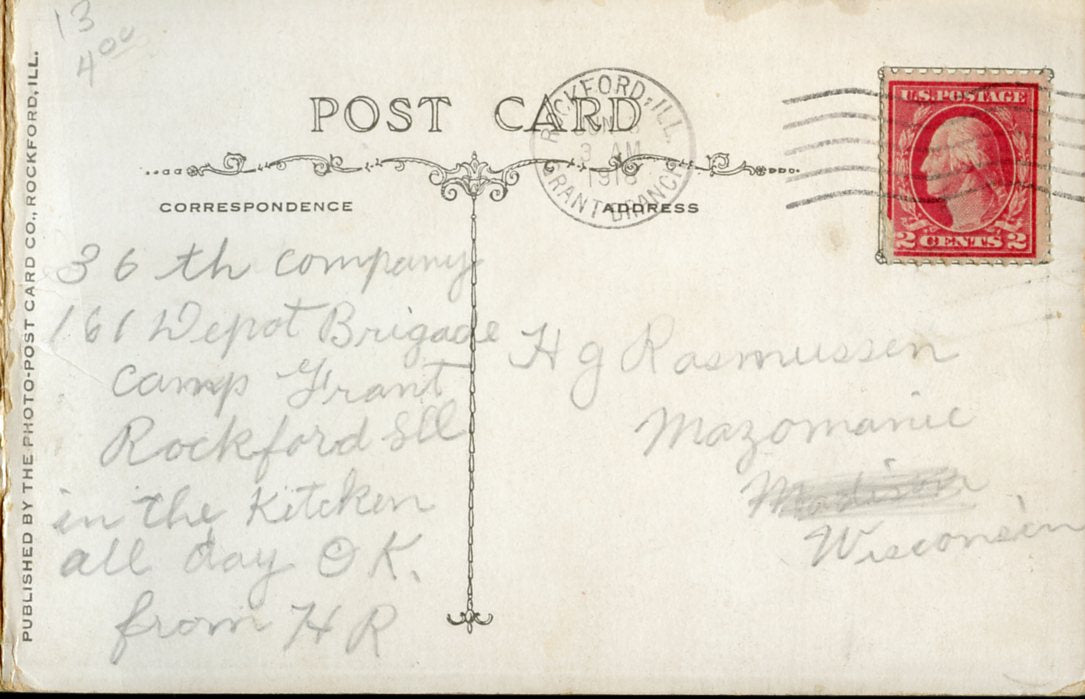 13
4⁰⁰
PUBLISHED BY THE PHOTO-POST CARD CO., ROCKFORD, ILL.
POST CARD
ROCKFORD, ILL.
3 AM
GRANT BRANCH
U.S. POSTAGE
2 CENTS 2
CORRESPONDENCE
ADDRESS
36 th company
161 Depot Brigade
Camp Grant
Rockford Ill
in the Kitcken
all day O K.
from H R
H g Rasmussen
Mazomanie
Madison
Wisconsin